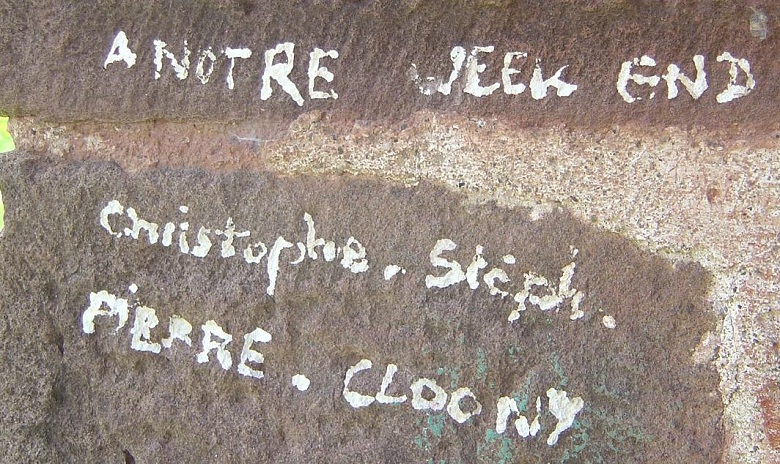 A NOTRE WEEK END
Christophe. Stéph.
PIERRE. CLOONY